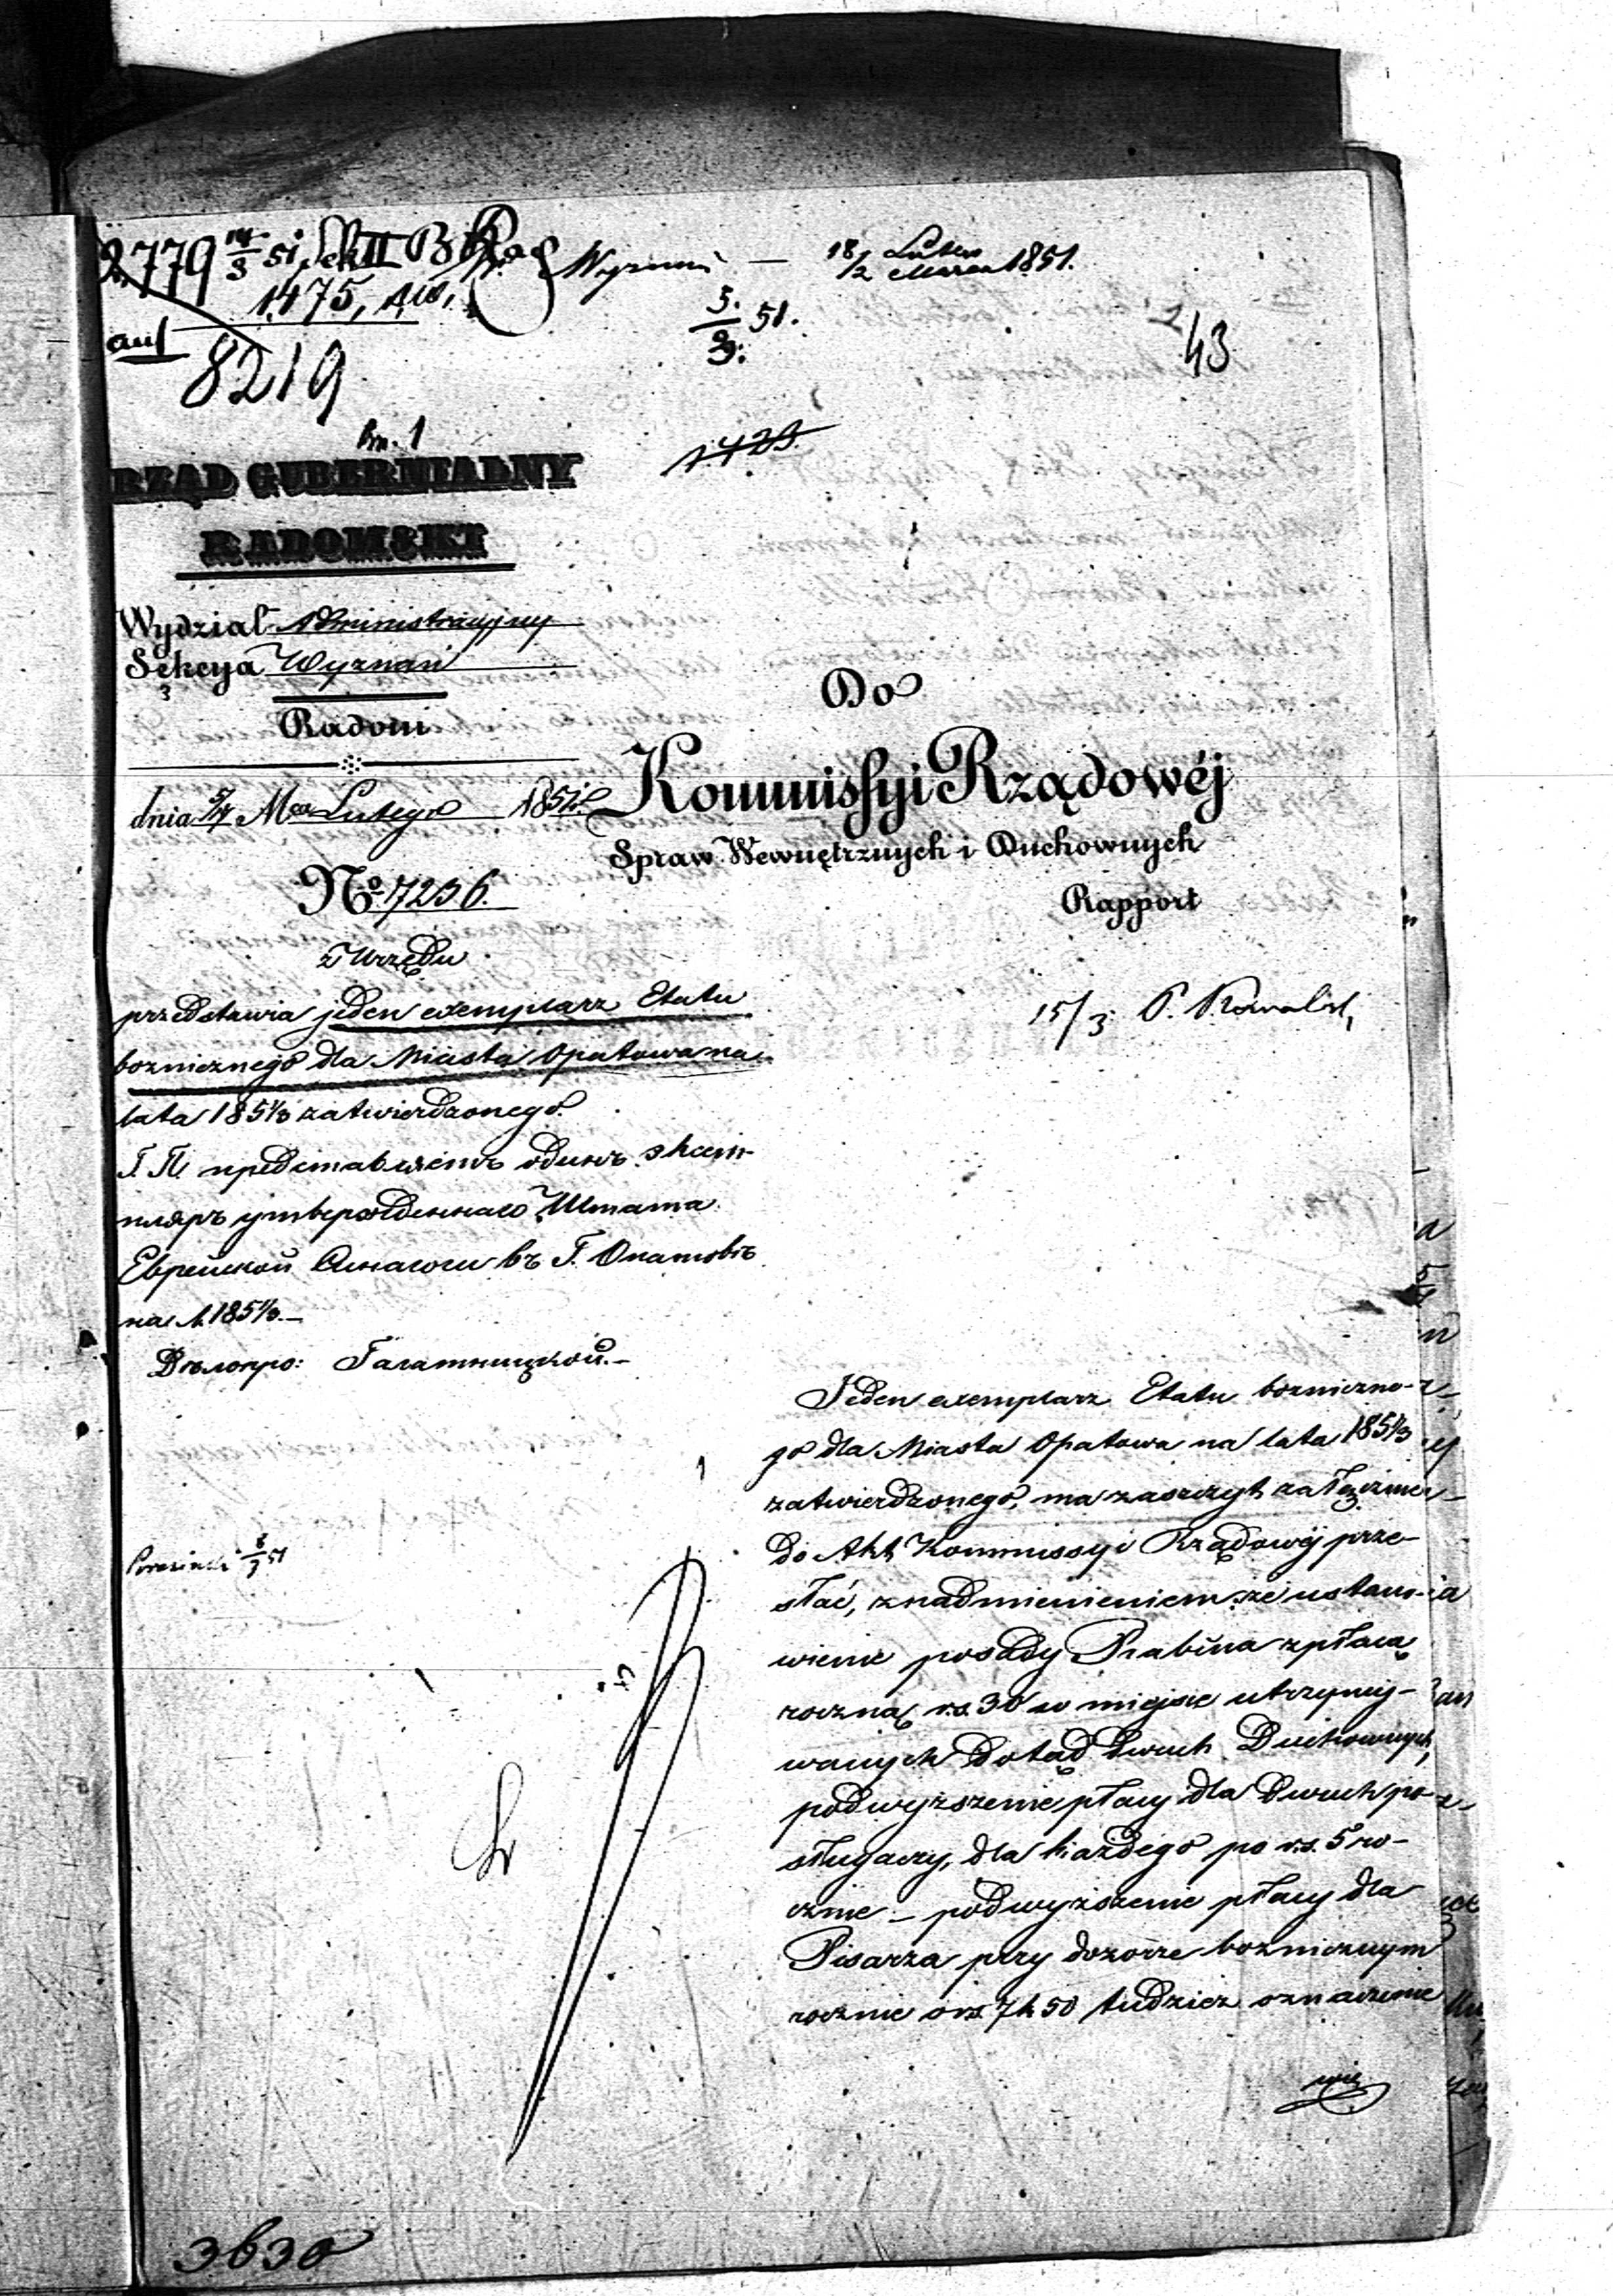 2779 14/3 51
1475,
auf 8219
Wyznań — 18/2 Lutego Marca 1851.
5./3. 51.
43
1423.
RZĄD GUBERNIALNY
RADOMSKI
Wydział Administracyjny
Sekcya Wyznań
Radom
dnia 5/17 Mca Lutego 1851 r.
Do
Kommissyi Rządowéj
Spraw Wewnętrznych i Duchownych
Rapport
No 17236.
z Urzędu
przedstawia jeden exemplarz Etatu
boznicznego dla Miasta Opatowa na
lata 1851/3 zatwierdzonego.
Г. П. представляетъ одинъ экзем-
пляръ утвержденнаго Штата
Еврейской Синагоги въ Г. Опатовѣ
на л. 1851/3.—
Дѣлопро:
15/3 P. Kowalski
Jeden exemplarz Etatu boznicznе-
go dla Miasta Opatowa na lata 1851/3
zatwierdzonego, ma zaszczyt załączeniu
do Akt Kommissyi Rządowéj prze-
słać, z nadmienieniem że ustano-
wienie posady Rabina z płacą
roczną rs. 30 w miejsce utrzymy-
wanych dotąd dwuch Duchownych,
podwyższenie płacy dla dwuch po-
sługaczy, dla każdego po rs. 5 ro-
cznie — podwyższenie płacy dla
Pisarza przy dozorze bozniczym
rocznie o rs. 7 k 50 tudzież oznaczenie
3630